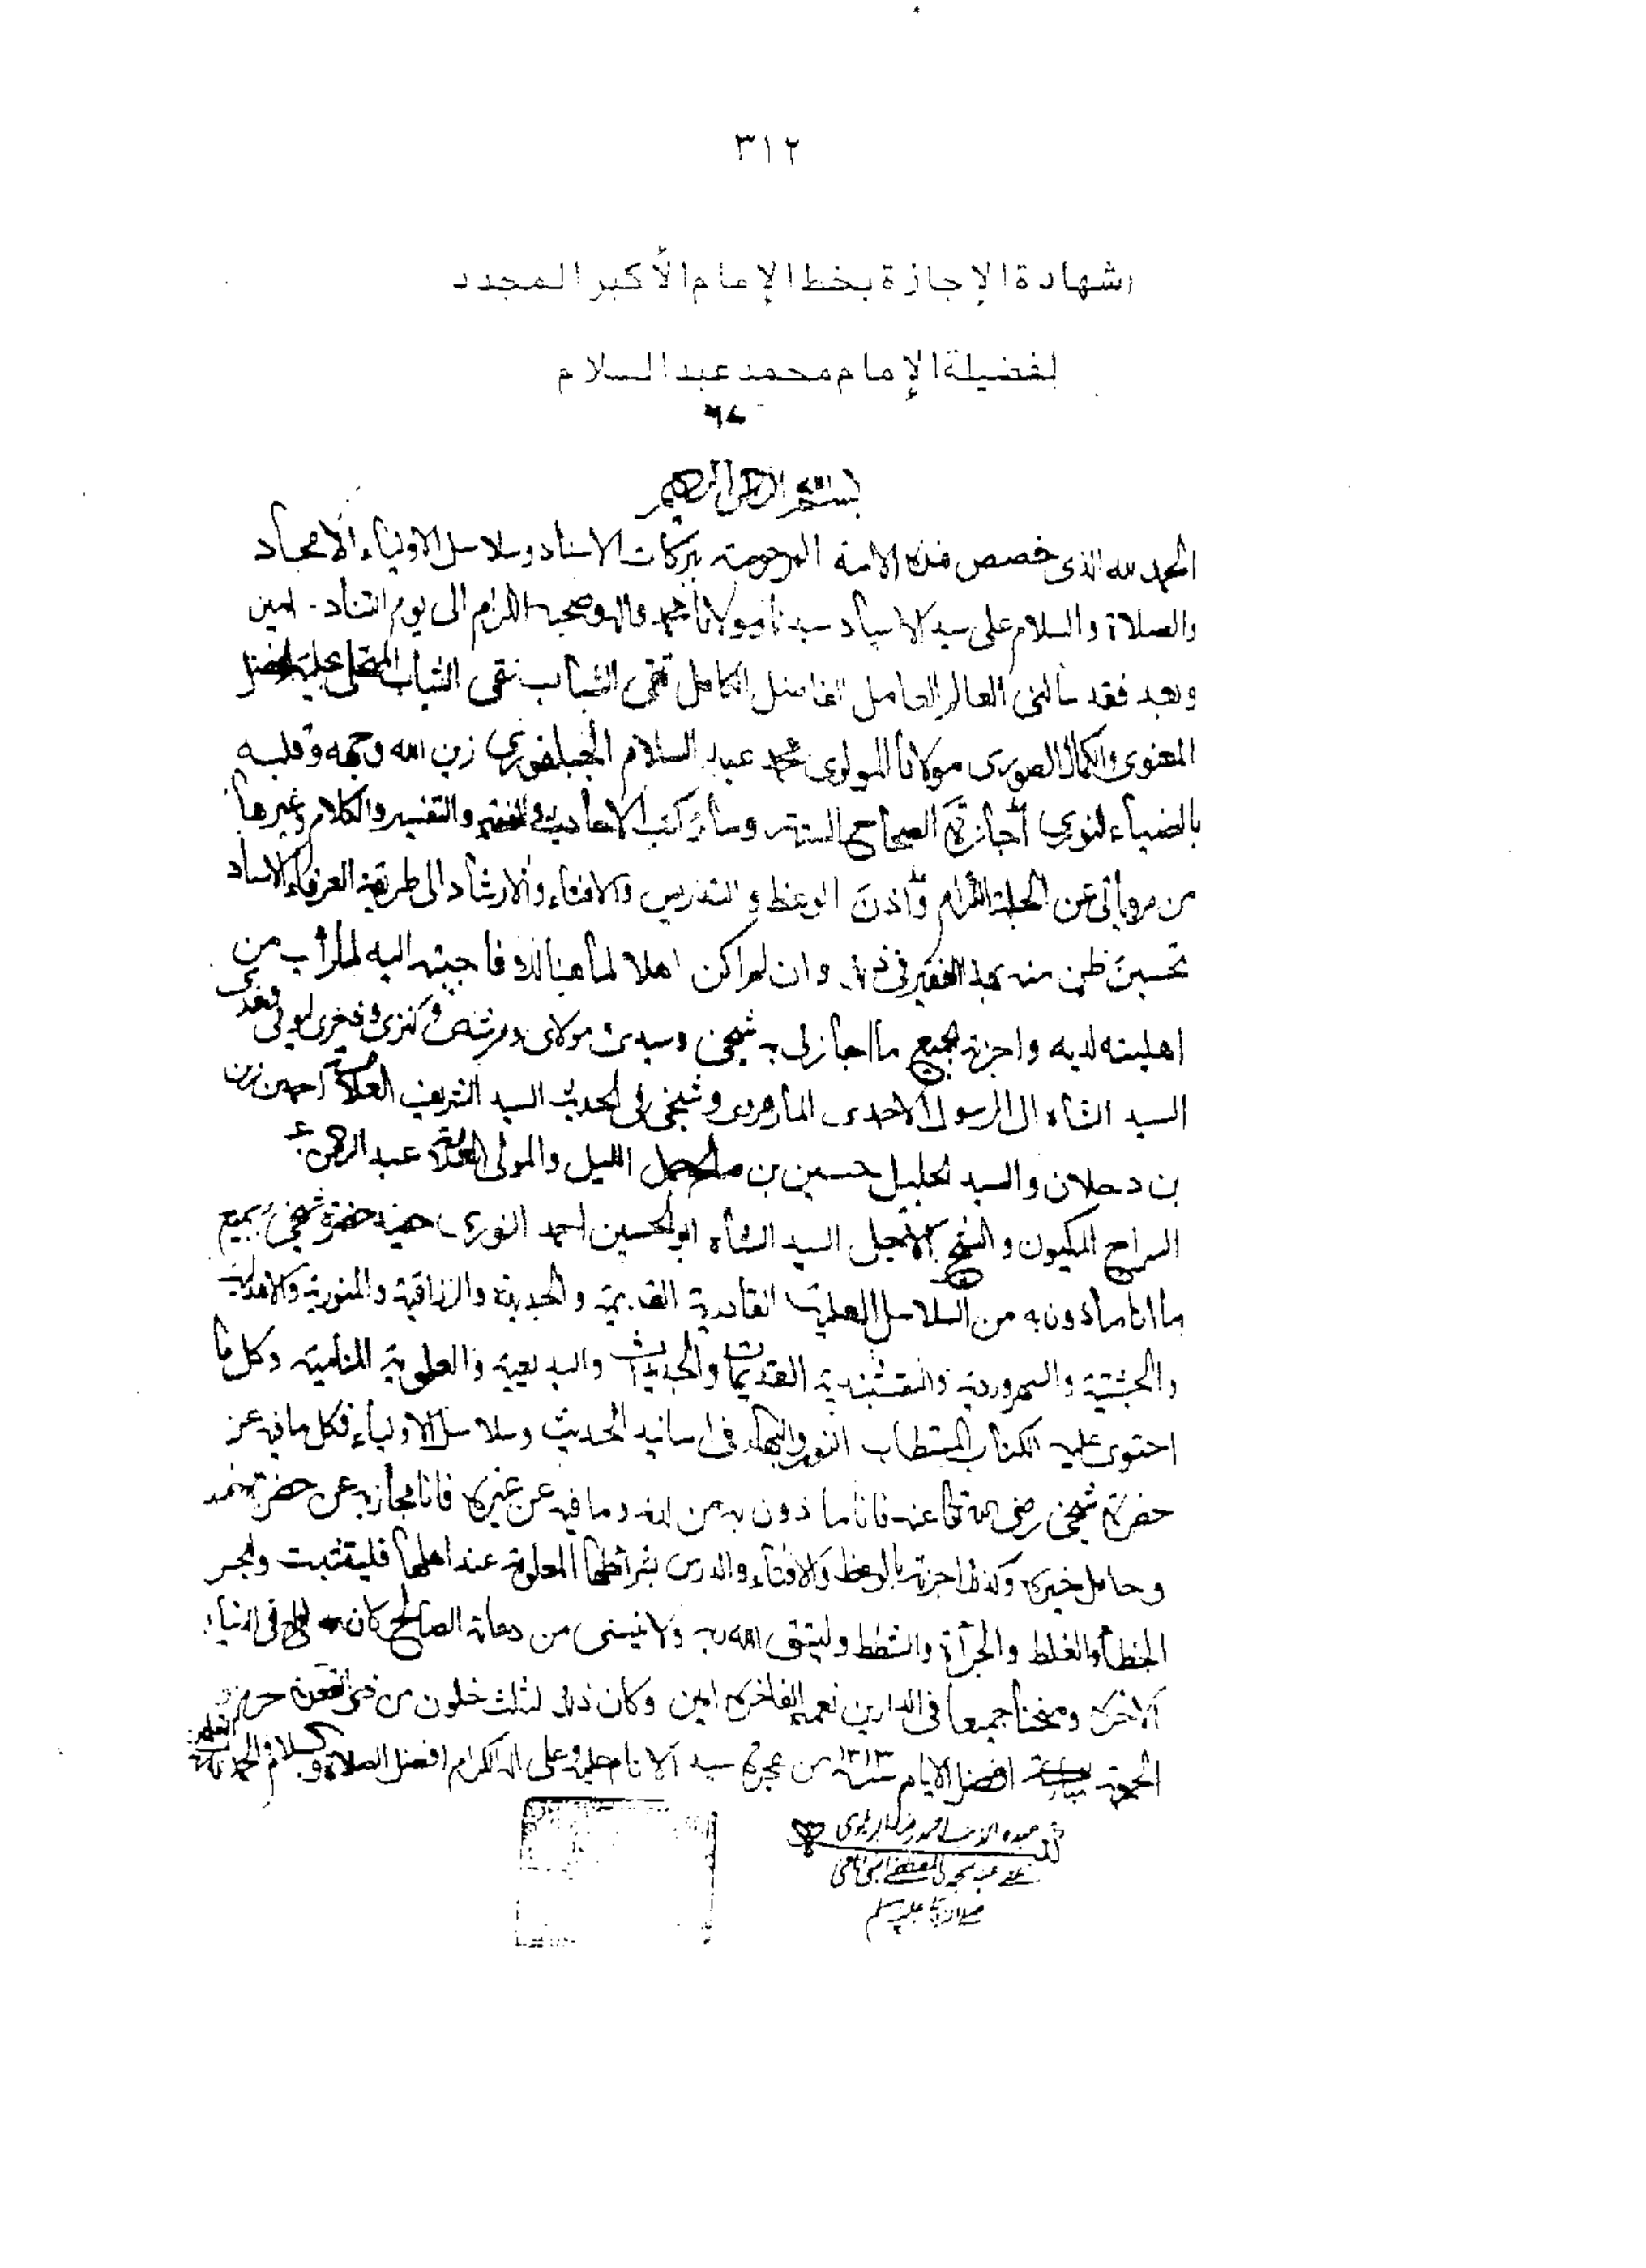 ٣١٢
شهادة الإجازة بخط الإمام الأكبر المجدد
لفضيلة الإمام محمد عبد السلام
بسم الله الرحمن الرحيم
الحمد لله الذى خصص هذه الامة المرحومة ببركات الاسناد وسلاسل الاولياء الامجاد
والصلاة والسلام على سيد الاسياد سيدنا ومولانا محمد واله وصحبه الكرام الى يوم التناد - امين
وبعد فقد سألنى العالم العامل الفاضل الكامل تقى الشباب نقى الثياب المتحلى بحلية الفضل
المعنوى والكمال الصورى مولانا المولوى محمد عبد السلام الجبلفورى زين الله وجهه وقلبه
بالضياء النورى اجازة الصحاح الستة وسائر كتب الاحاديث والفقه والتفسير والكلام وغيرها
من مروياتى عن الجلة الكرام واذن الوعظ والتدريس والافتاء والارشاد الى طريقة العرفاء الاسياد
تحسين ظن منه بهذا الفقير وان لم اكن اهلا لما هنالك فاجبته اليه لما رأيت من
اهليته لديه واجزته بجميع ما اجازنى به شيخى وسيدى ومولاى ومرشدى وكنزى وذخرى ليومى وغدى
السيد الشاه ال الرسول الاحمدى المارهروى وشيخى فى الحديث السيد الشريف العلامة احمد بن زين
بن دحلان والسيد الجليل حسين بن صالح جمل الليل والمولى العلامة عبد الرحمن
السراج المكيون والشيخ الاجل السيد الشاه ابو الحسين احمد النورى حفيد حضرة شيخى بجميع
ما انا ماذون به من السلاسل العلية القادرية القديمة والجديدة والرزاقية والمنورية والاهدلية
والچشتية والسهروردية والنقشبندية القديمة والجديدة والبديعية والعلوية المنامية وكل ما
احتوى عليه الكتاب المستطاب النور والبهاء فى اسانيد الحديث وسلاسل الاولياء فكل ما فيه عن
حضرة شيخى رضى الله تعالى عنه فانا ماذون به من لدنه وما فيه عن غيره فانا مجاز به عن حضرة
وحامل خيره وكذلك اجزته بالوعظ والافتاء والدرس بشرائطها المعلومة عند اهلها فليتثبت وليحذر
الخطأ والغلط والجرأة والشطط وليتق الله ربه ولا ينسنى من دعائه الصالح كان الله له فى الدنيا و
الاخرة ومنحنا جميعا فى الدارين نعمه الفاخرة امين وكان ذلك لثلث خلون من ذى القعدة الحرام يوم
الجمعة افضل الايام سنة ١٣١٣ من هجرة سيد الانام عليه وعلى اله الكرام افضل الصلاة والسلام والحمد لله رب العلمين
عبده المذنب احمد رضا البريلوى
عفى عنه بمحمد المصطفى النبى الامى
صلى الله تعالى عليه وسلم